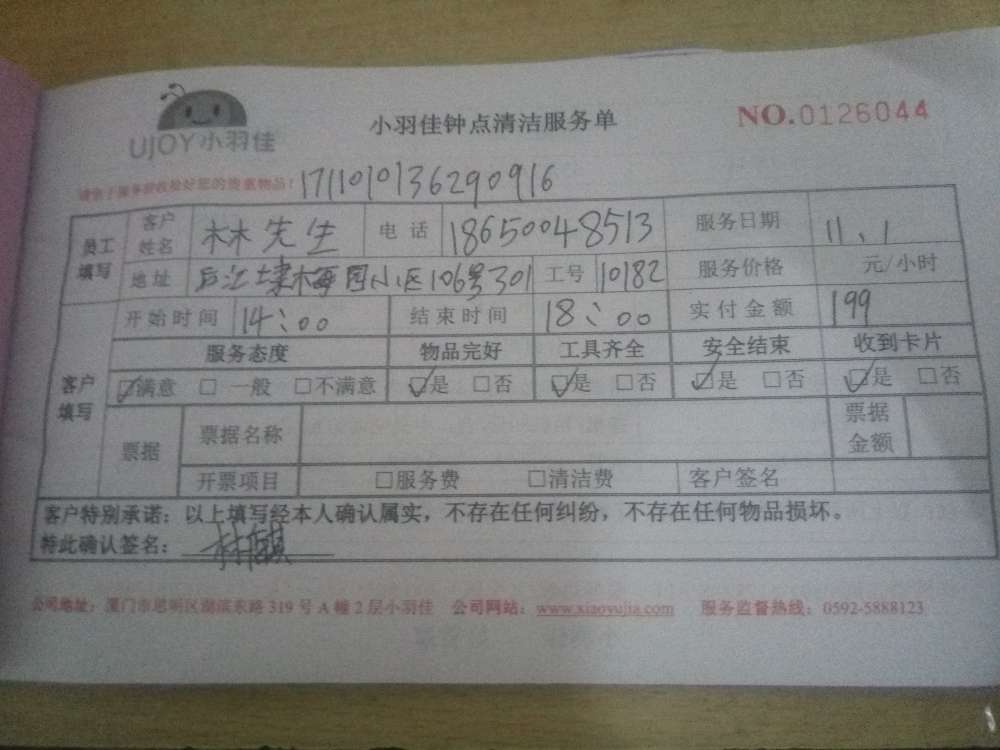 UJOY小羽佳
小羽佳钟点清洁服务单
NO.0126044
请你于服务前收好您的贵重物品!
1711010136290916
员工填写 客户姓名 林先生 电话 18650048513 服务日期 11、1
地址 后江埭梅园小区106号301 工号 10182 服务价格 元/小时
客户填写 开始时间 14:00 结束时间 18:00 实付金额 199
服务态度 物品完好 工具齐全 安全结束 收到卡片
☑满意 □一般 □不满意 ☑是 □否 ☑是 □否 ☑是 □否 ☑是 □否
票据 票据名称 票据金额
开票项目 □服务费 □清洁费 客户签名
客户特别承诺:以上填写经本人确认属实,不存在任何纠纷,不存在任何物品损坏。
特此确认签名: 林
公司地址:厦门市思明区湖滨东路319号A幢2层小羽佳 公司网站:www.xiaoyujia.com 服务监督热线:0592-5888123